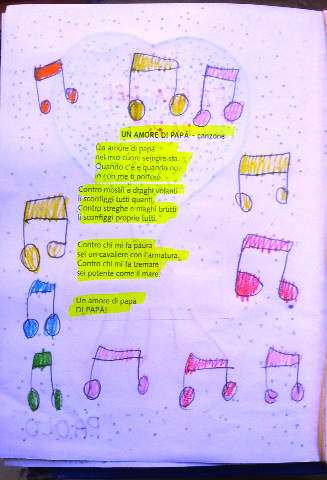 UN AMORE DI PAPÀ - canzone
Un amore di papà
nel mio cuore sempre sta.
Quando c'è e quando no
io con me ti porterò.
Contro mostri e draghi volanti
li sconfiggi tutti quanti.
Contro streghe e maghi brutti
li sconfiggi proprio tutti.
Contro chi mi fa paura
sei un cavaliere con l'armatura.
Contro chi mi fa tremare
sei potente come il mare.
Un amore di papà
DI PAPÀ!
PAOLO